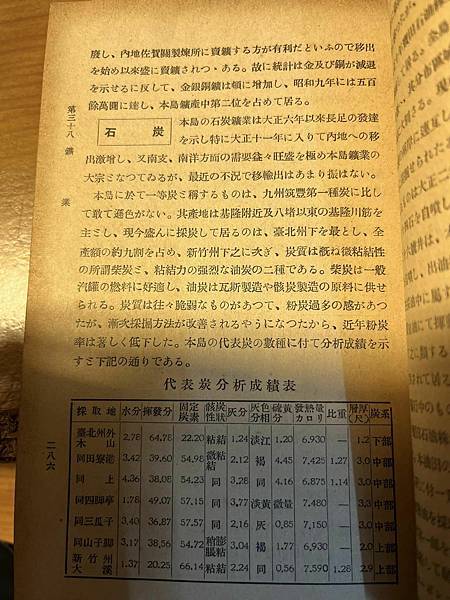 廢し、內地佐賀關製煉所に賣鑛する方が有利だといふので移出
を始め以來盛に賣鑛されつゝある。故に統計は金及び銅が減退
を示せるに反して、金銀銅鑛は頓に增加し、昭和九年には五百
餘萬圓に達し、本島鑛產中第二位を占めて居る。
石炭
本島の石炭鑛業は大正六年以來長足の發達
を示し特に大正十一年に入りて內地への移
出激增し、又南支、南洋方面の需要益々旺盛を極め本島鑛業の
大宗となつてゐるが、最近の不況で移輸出はあまり振はない。
本島に於て一等炭と稱するものは、九州筑豐第一種炭に比し
て敢て遜色がない。其產地は基隆附近及八堵以東の基隆川筋を
主とし、現今盛んに採炭して居るのは、臺北州下を最とし、全
產額の約九割を占め、新竹州下之に次ぎ、炭質は槪ね微粘結性
の所謂柴炭と、粘結力の强烈な油炭の二種である。柴炭は一般
汽罐の燃料に好適し、油炭は瓦斯製造や骸炭製造の原料に供せ
られる。炭質は往々脆弱なものがあつて、粉炭過多の感があつ
たが、漸次採掘方法が改善されるやうになつたから、近年粉炭
率は著しく低下した。本島の代表炭の數種に付て分析成績を示
すと下記の通りである。
代表炭分析成績表
採取地 水分 揮發分 固定炭素 骸炭性狀 灰分 灰色分相 硫黃分 發熱量カロリ 比重 層厚(尺) 炭系
臺北州外木山 2.78 64.78 22.20 粘結 1.24 淡江 1.20 6,930 — 1.2 下部
同田寮港 3.42 39.60 54.98 微粘結 2.12 褐 4.45 7,425 1.27 3.0 中部
同上 4.36 38.08 54.23 同 3.28 同 4.16 6,875 1.14 3.0 中部
同四脚亭 1.78 49.07 57.15 同 3.77 淡黃 微量 7.480 — 3.3 中部
同三瓜子 3,40 36,87 57.57 同 2,16 灰 0,85 7,150 — 3.0 中部
同山子脚 3,17 38,56 54.72 稍膨脹粘 3,04 褐 1.77 6,930 — 2.0 上部
新竹州大溪 1.37 20.25 66.14 粘結 2,24 同 0,56 7.590 1.28 2.9 上部
第三十八 鑛業
二八六